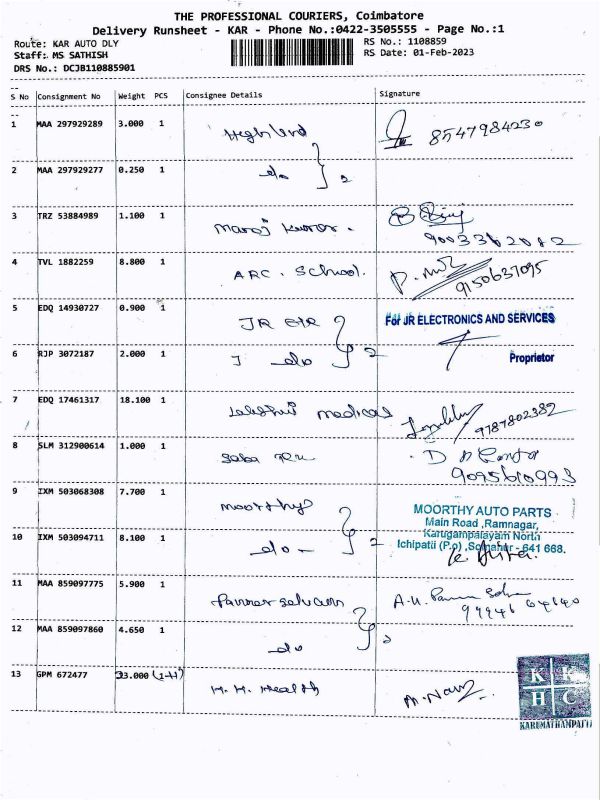 THE PROFESSIONAL COURIERS, Coimbatore
Delivery Runsheet - KAR - Phone No.:0422-3505555 - Page No.:1
Route: KAR AUTO DLY RS No.: 1108859
Staff: MS SATHISH RS Date: 01-Feb-2023
DRS No.: DCJB110885901
S No Consignment No Weight PCS Consignee Details Signature
1 MAA 297929289 3.000 1 Highland 8547984230
2 MAA 297929277 0.250 1 do } 2
3 TRZ 53884989 1.100 1 Manoj Kumar.
4 TVL 1882259 8.800 1 ARC. School. 9150637095
5 EDQ 14930727 0.900 1 JR For JR ELECTRONICS AND SERVICES
6 RJP 3072187 2.000 1 do } 2 Proprietor
7 EDQ 17461317 18.100 1 Lakshmi medical 9787802382
8 SLM 312900614 1.000 1 9095610993
9 IXM 503068308 7.700 1 moorthy MOORTHY AUTO PARTS
Main Road ,Ramnagar,
Karugampalayam North
10 IXM 503094711 8.100 1 do } 2 Ichipatii (P.o) ,Somanur - 641 668.
11 MAA 859097775 5.900 1 Panner selvam
12 MAA 859097860 4.650 1 do } 2
13 GPM 672477 33.000 (1-H) H. H. Health
K K
H C
KARUMATHAMPATTI